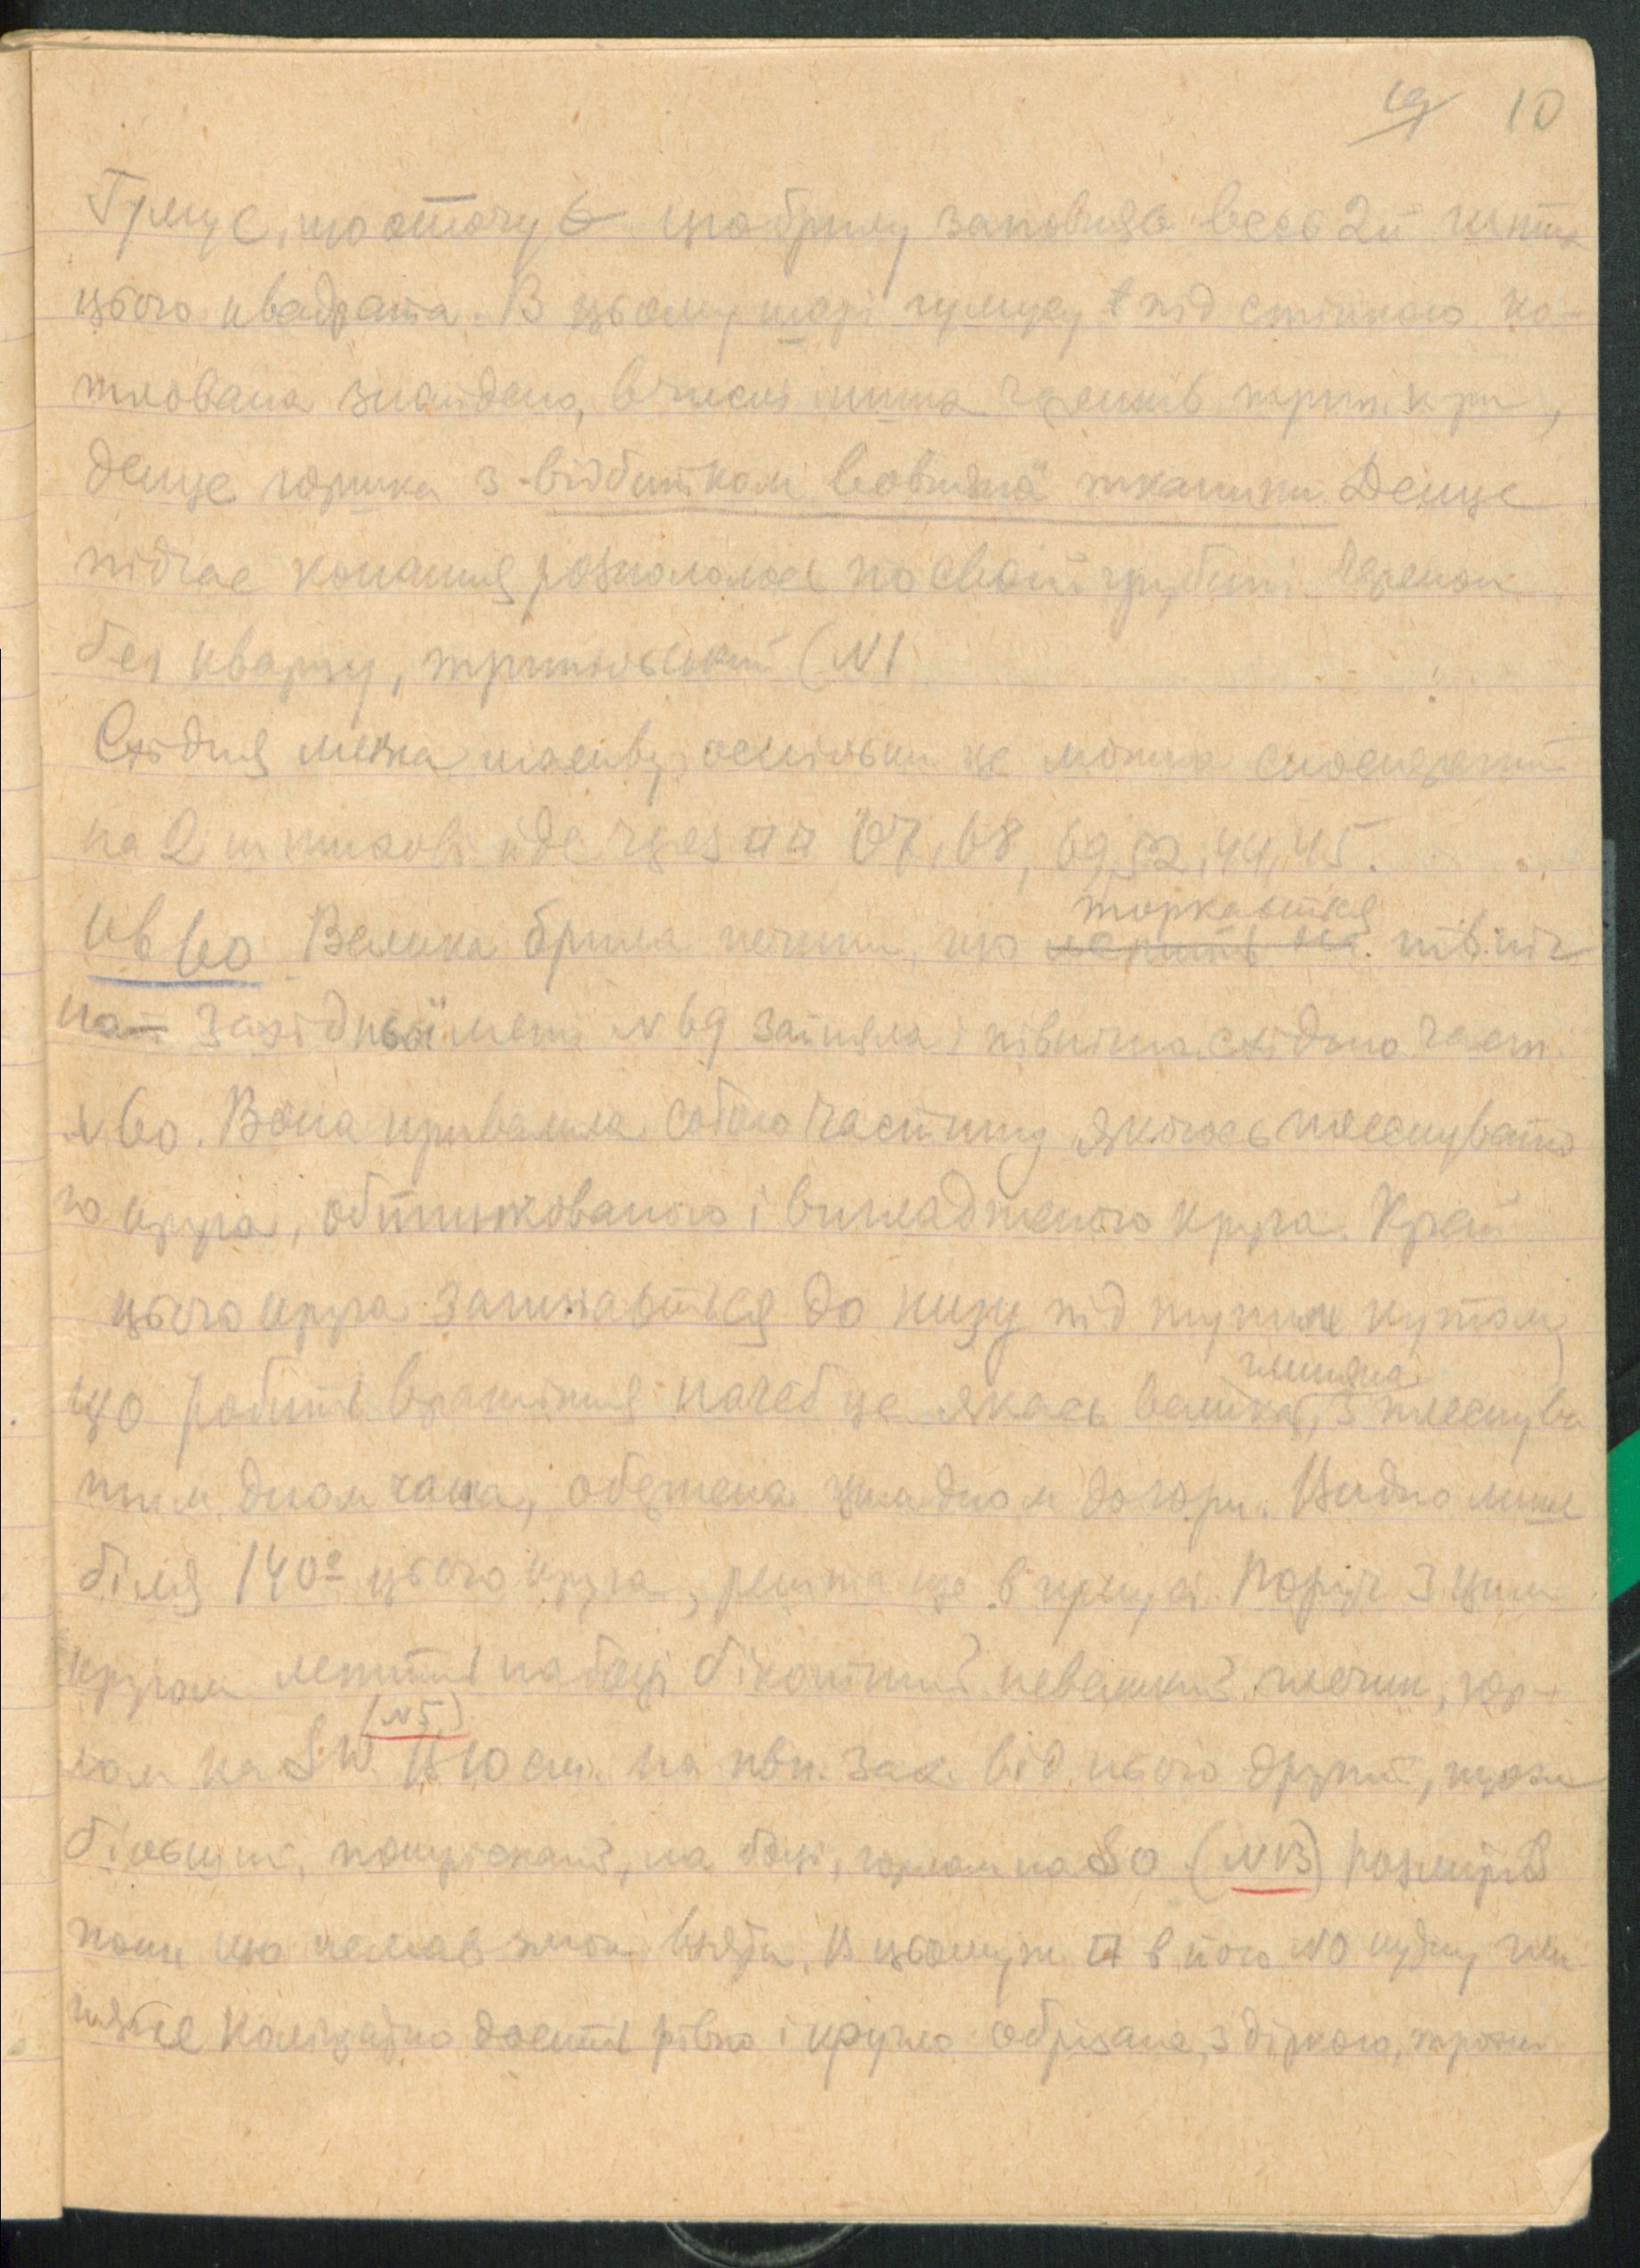 19 10
Гумус, що оточує цю брилу заповняє весь 2й штих
цього квадрата. В цьому шарі гумусу під стінкою ко-
тлована знайдено, в числі інших черепків трипіл. к-ри,
денце горшка з відбитком вовняної тканини. Денце
підчас копання розкололось по своїй грубині. Черепок
без кварцу, трипільський (N1
Східня межа площ. оскільки це можна спостерегти
на 2 штихові йде через □□ 67, 68, 69, 52, 44, 45.
кв 60 Велика брила печини, що лежить на торкається північ
но західньої межі N 69 зайняла і північно східню част.
N 60. Вона привалила собою частину якогось плескувато
го круга, обтинкованого і вигладженого круга. Край
цього круга загинається до низу під тупим кутом,
що робить враження начеб це якась велика, глиняна з плескува
тим дном чаша, обернена цим дном догори. Видно лише
біля 140° цього круга, решта ще в грунті. Поруч з цим
кругом лежить на боці біконічний невеликий глечик, гор-
лом на SW. (N5) В 10 см. на півн. зах. від нього другий, трохи
більший, потрісканий, на боці, горлом на SO (N 13) Розмірів
поки що немає змоги взяти. В цьому ж □ в його NO кутку, гли
няне коліщатко досить рівно і кругло обрізане, з діркою, трохи